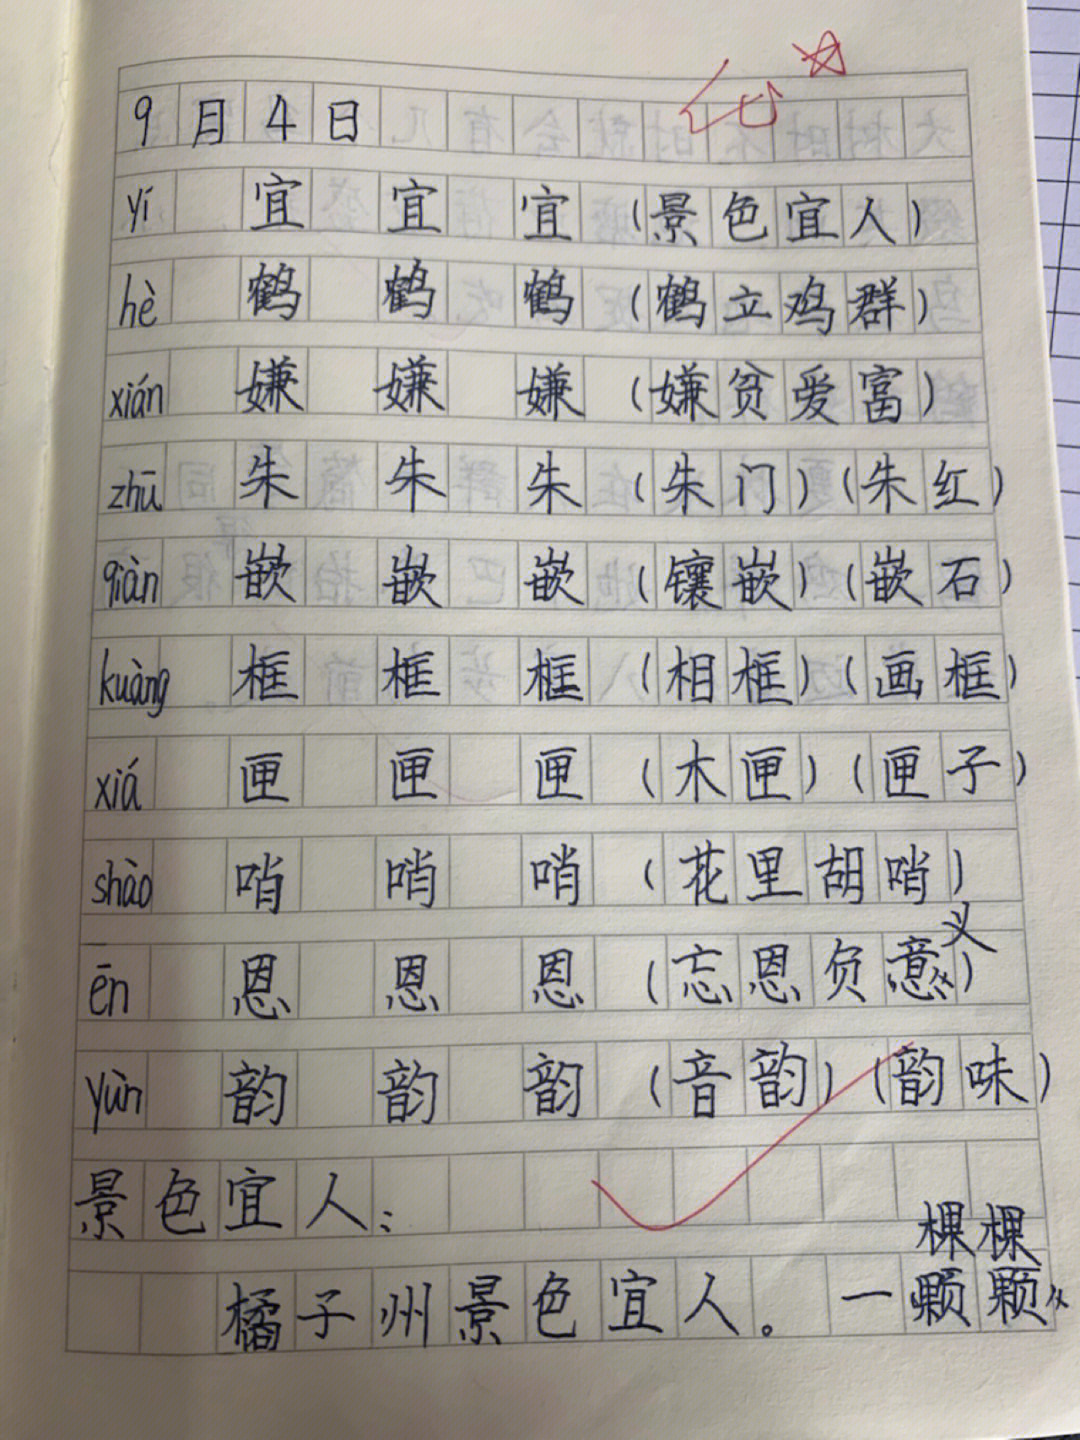 9月4日
yí 宜 宜 宜 (景色宜人)
hè 鹤 鹤 鹤 (鹤立鸡群)
xián 嫌 嫌 嫌 (嫌贫爱富)
zhū 朱 朱 朱 (朱门) (朱红)
qiàn 嵌 嵌 嵌 (镶嵌) (嵌石)
kuàng 框 框 框 (相框) (画框)
xiá 匣 匣 匣 (木匣) (匣子)
shào 哨 哨 哨 (花里胡哨)
义
ēn 恩 恩 恩 (忘恩负意)
yùn 韵 韵 韵 (音韵) (韵味)
景色宜人:
棵棵
橘子州景色宜人。一颗颗